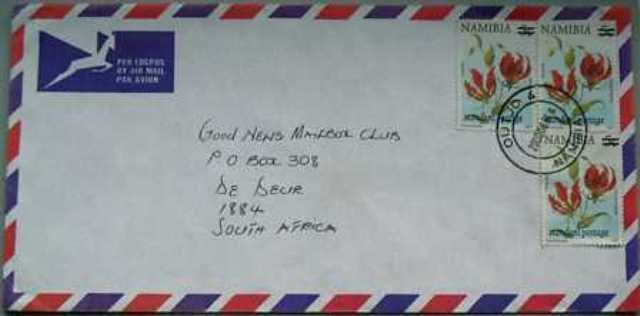 PER LUGPOS
BY AIR MAIL
PAR AVION
NAMIBIA
NAMIBIA
NAMIBIA
standard postage
standard postage
standard postage
OUTJO
NAMIBIA
Good News Mailbox Club
P O Box 308
De Deur
1884
South Africa